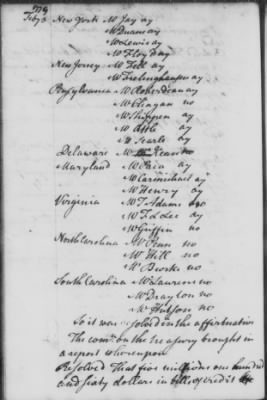 1779
Feby 3 New York Mr Jay ay
Mr Duane ay
Mr Lewis ay
Mr Floyd ay
New Jersey Mr Fell ay
Mr Frelinghuysen ay
Pensylvania Mr Roberdeau ay
Mr Clingan no
Mr Shippen ay
Mr Atlee ay
Mr Searle ay
Delaware Mr McKean no
Maryland Mr Paca ay
Mr Carmichael ay
Mr Henry ay
Virginia Mr T Adams no
Mr F. L Lee ay
Mr Griffin no
North Carolina Mr Penn no
Mr Hill no
Mr Burke no
South Carolina Mr Laurens no
Mr Drayton no
Mr Hutson no
So it was resolved in the affirmative
The comee on the Treasury brought
in a report whereupon
Resolved That five millions one hundred
and sixty dollars in bills of credit